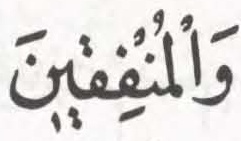 وَالْمُنْفِقِينَ